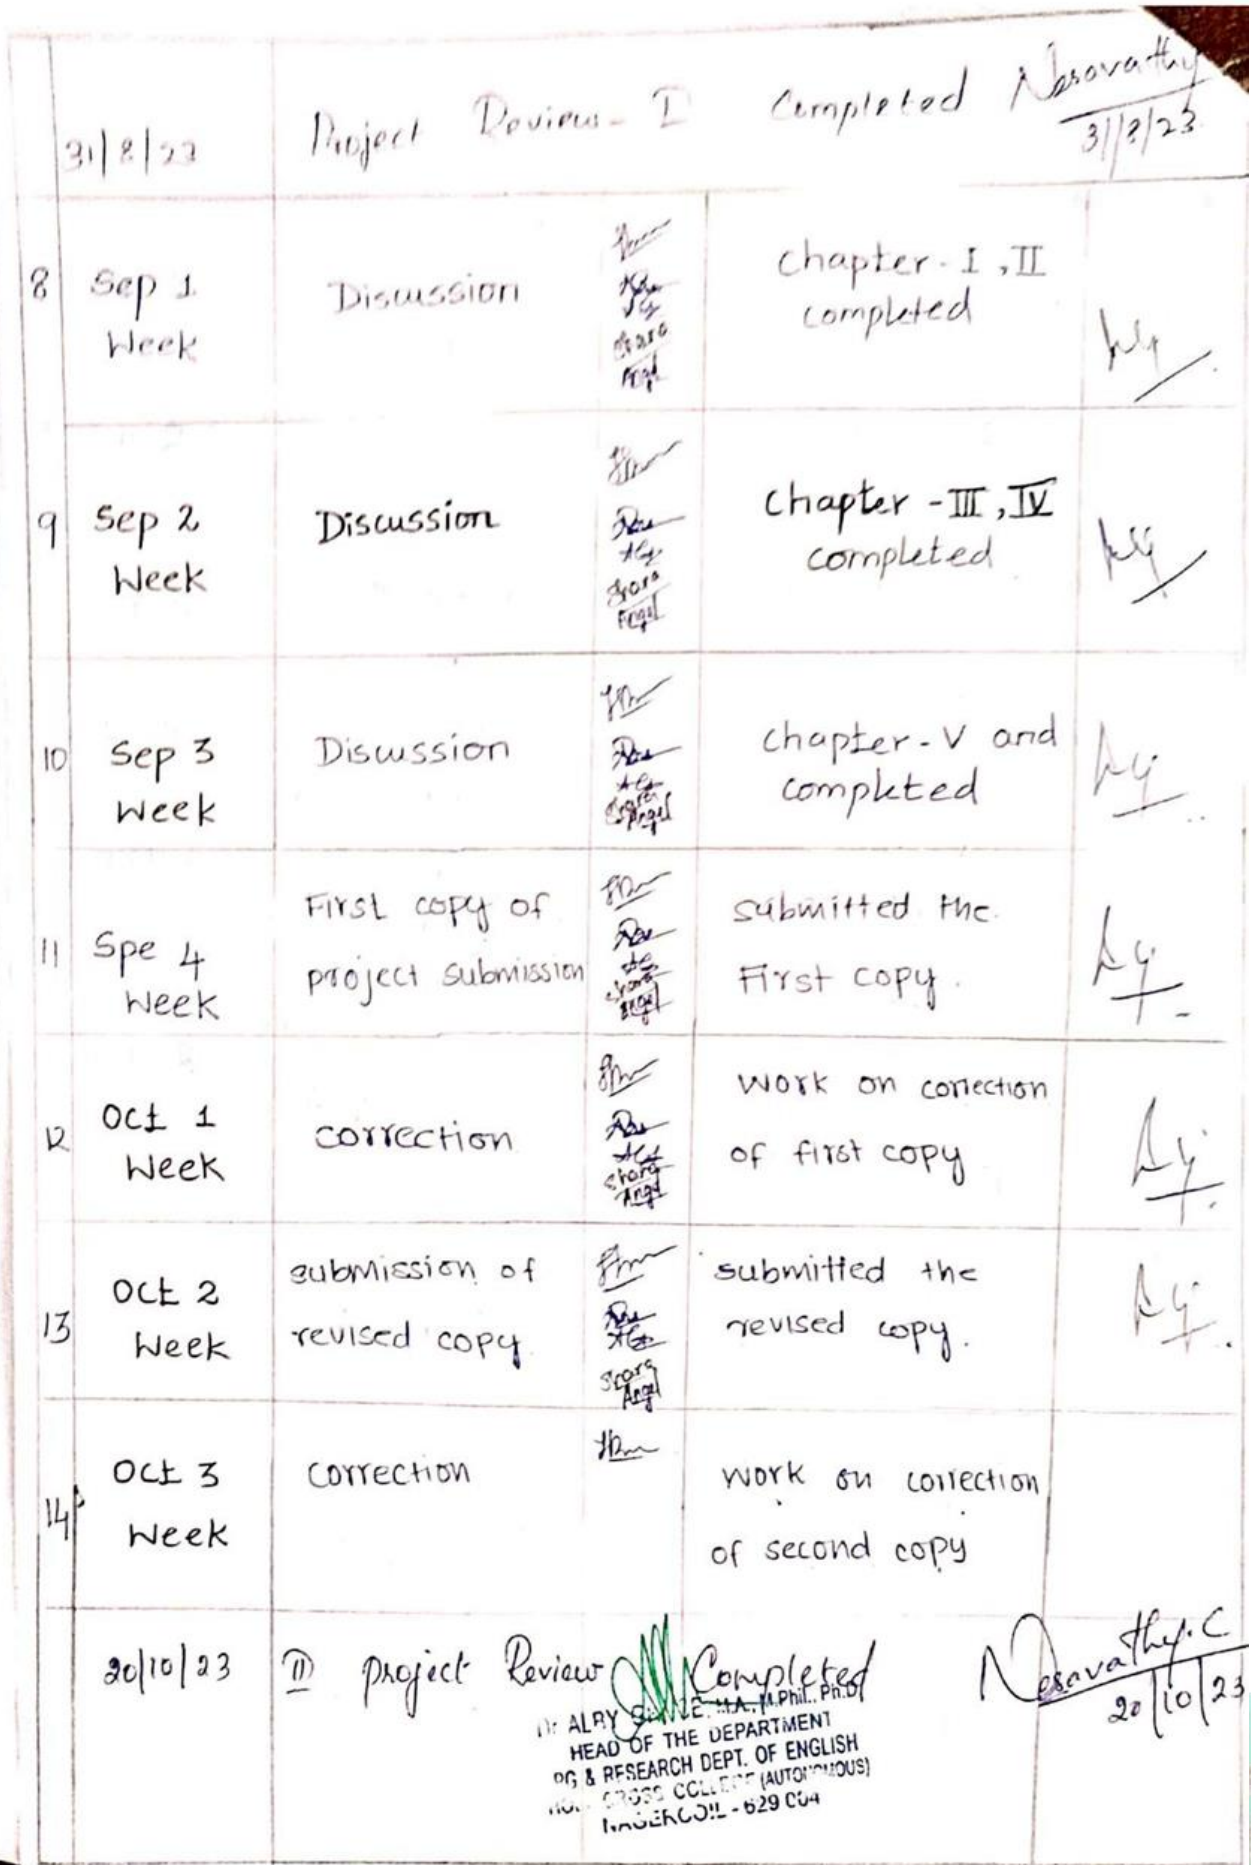 31/8/23 Project Review - I Completed Nesavathy
31/8/23
8 Sep 1 Week Discussion Chapter - I, II completed
9 Sep 2 Week Discussion Chapter - III, IV completed
Shara
Angel
10 Sep 3 Week Discussion Chapter - V and completed
Shara
Angel
11 Spe 4 Week First copy of project submission submitted the First copy.
Shara
Angel
12 Oct 1 Week correction work on correction of first copy
Shara
Angel
13 Oct 2 Week submission of revised copy submitted the revised copy.
Shara
Angel
14 Oct 3 Week correction work on correction of second copy
20/10/23 II project Review Completed Nesavathy.C
20/10/23
M.A., M.Phil., Ph.D
HEAD OF THE DEPARTMENT
PG & RESEARCH DEPT. OF ENGLISH
CROSS COLLEGE (AUTONOMOUS)
NAGERCOIL - 629 004